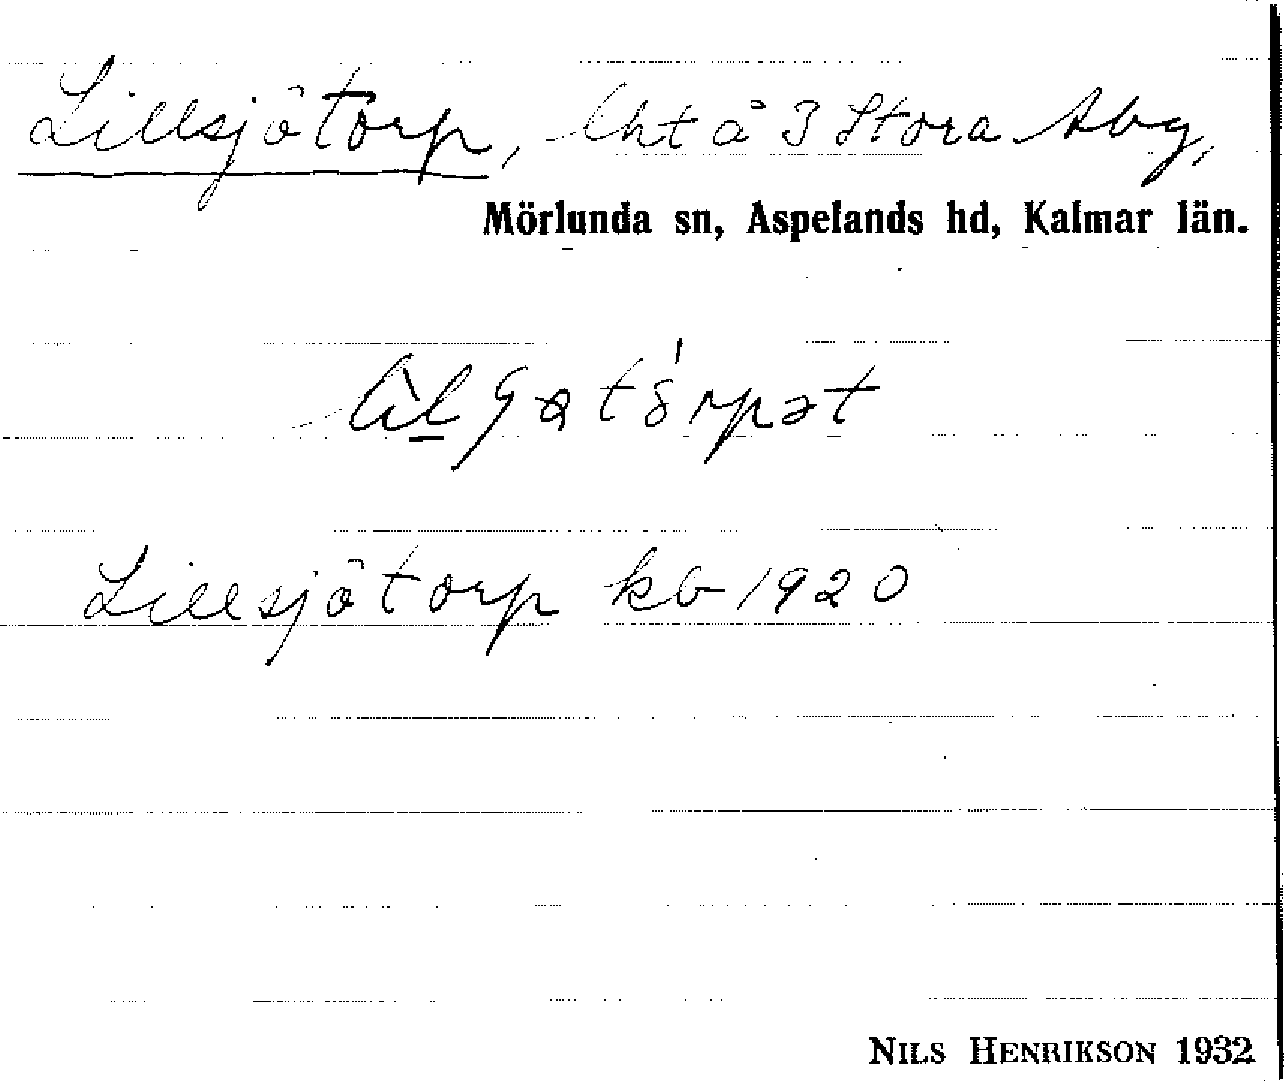 Lillsjötorp, lht å 3 Stora Aby,
Mörlunda sn, Aspelands hd, Kalmar län.
Lillsjötorp kb 1920
NILS HENRIKSON 1932